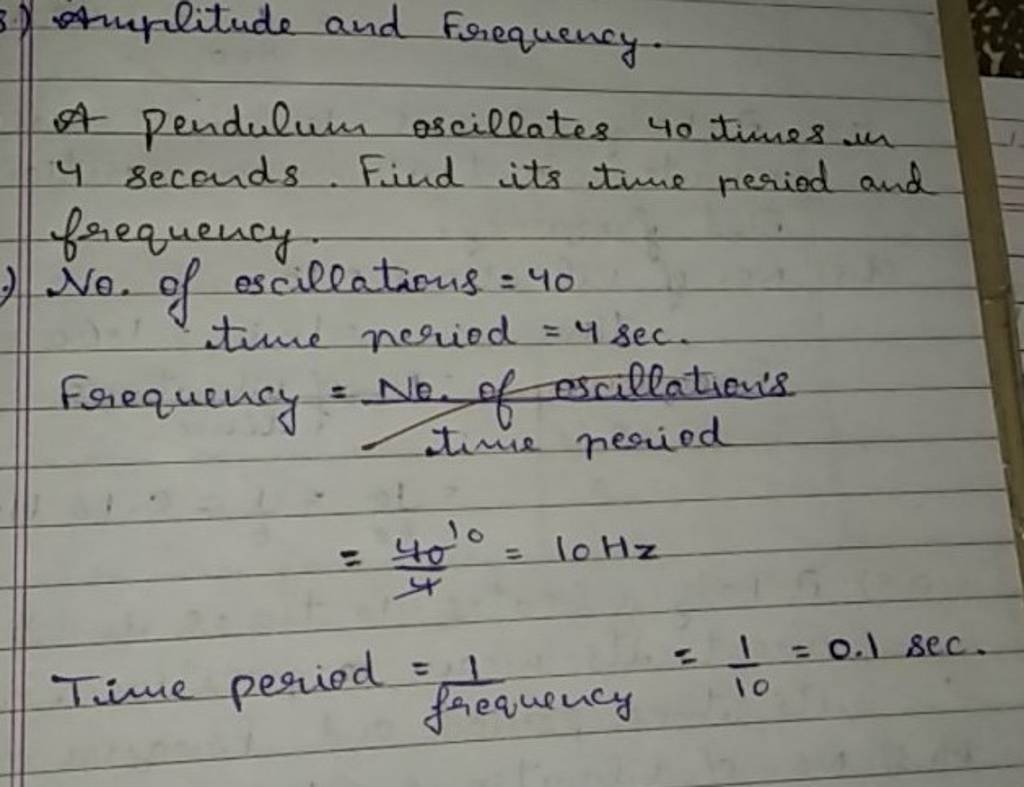 3.) Amplitude and Frequency.
A pendulum oscillates 40 times in
4 seconds. Find its time period and
frequency.
No. of oscillations = 40
time period = 4 sec.
Frequency = No. of oscillations
time period
= 40 10 = 10 Hz
4
Time period = 1 = 1 = 0.1 sec.
frequency 10